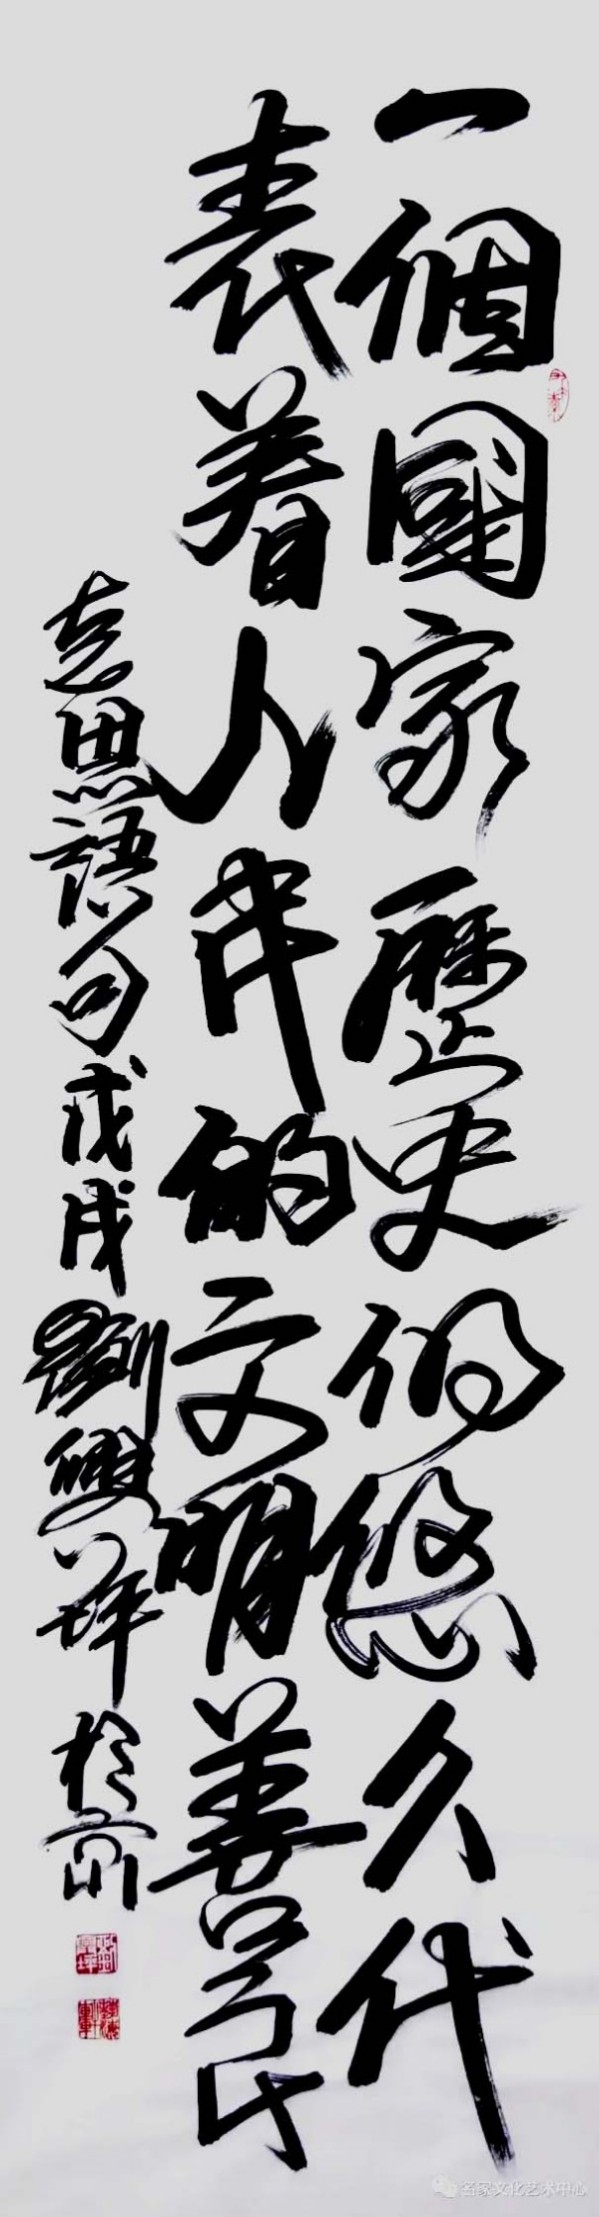 一個國家歷史的悠久代
表着人民的文明善
志思語句戊戌劉雙坪於
名家文化艺术中心